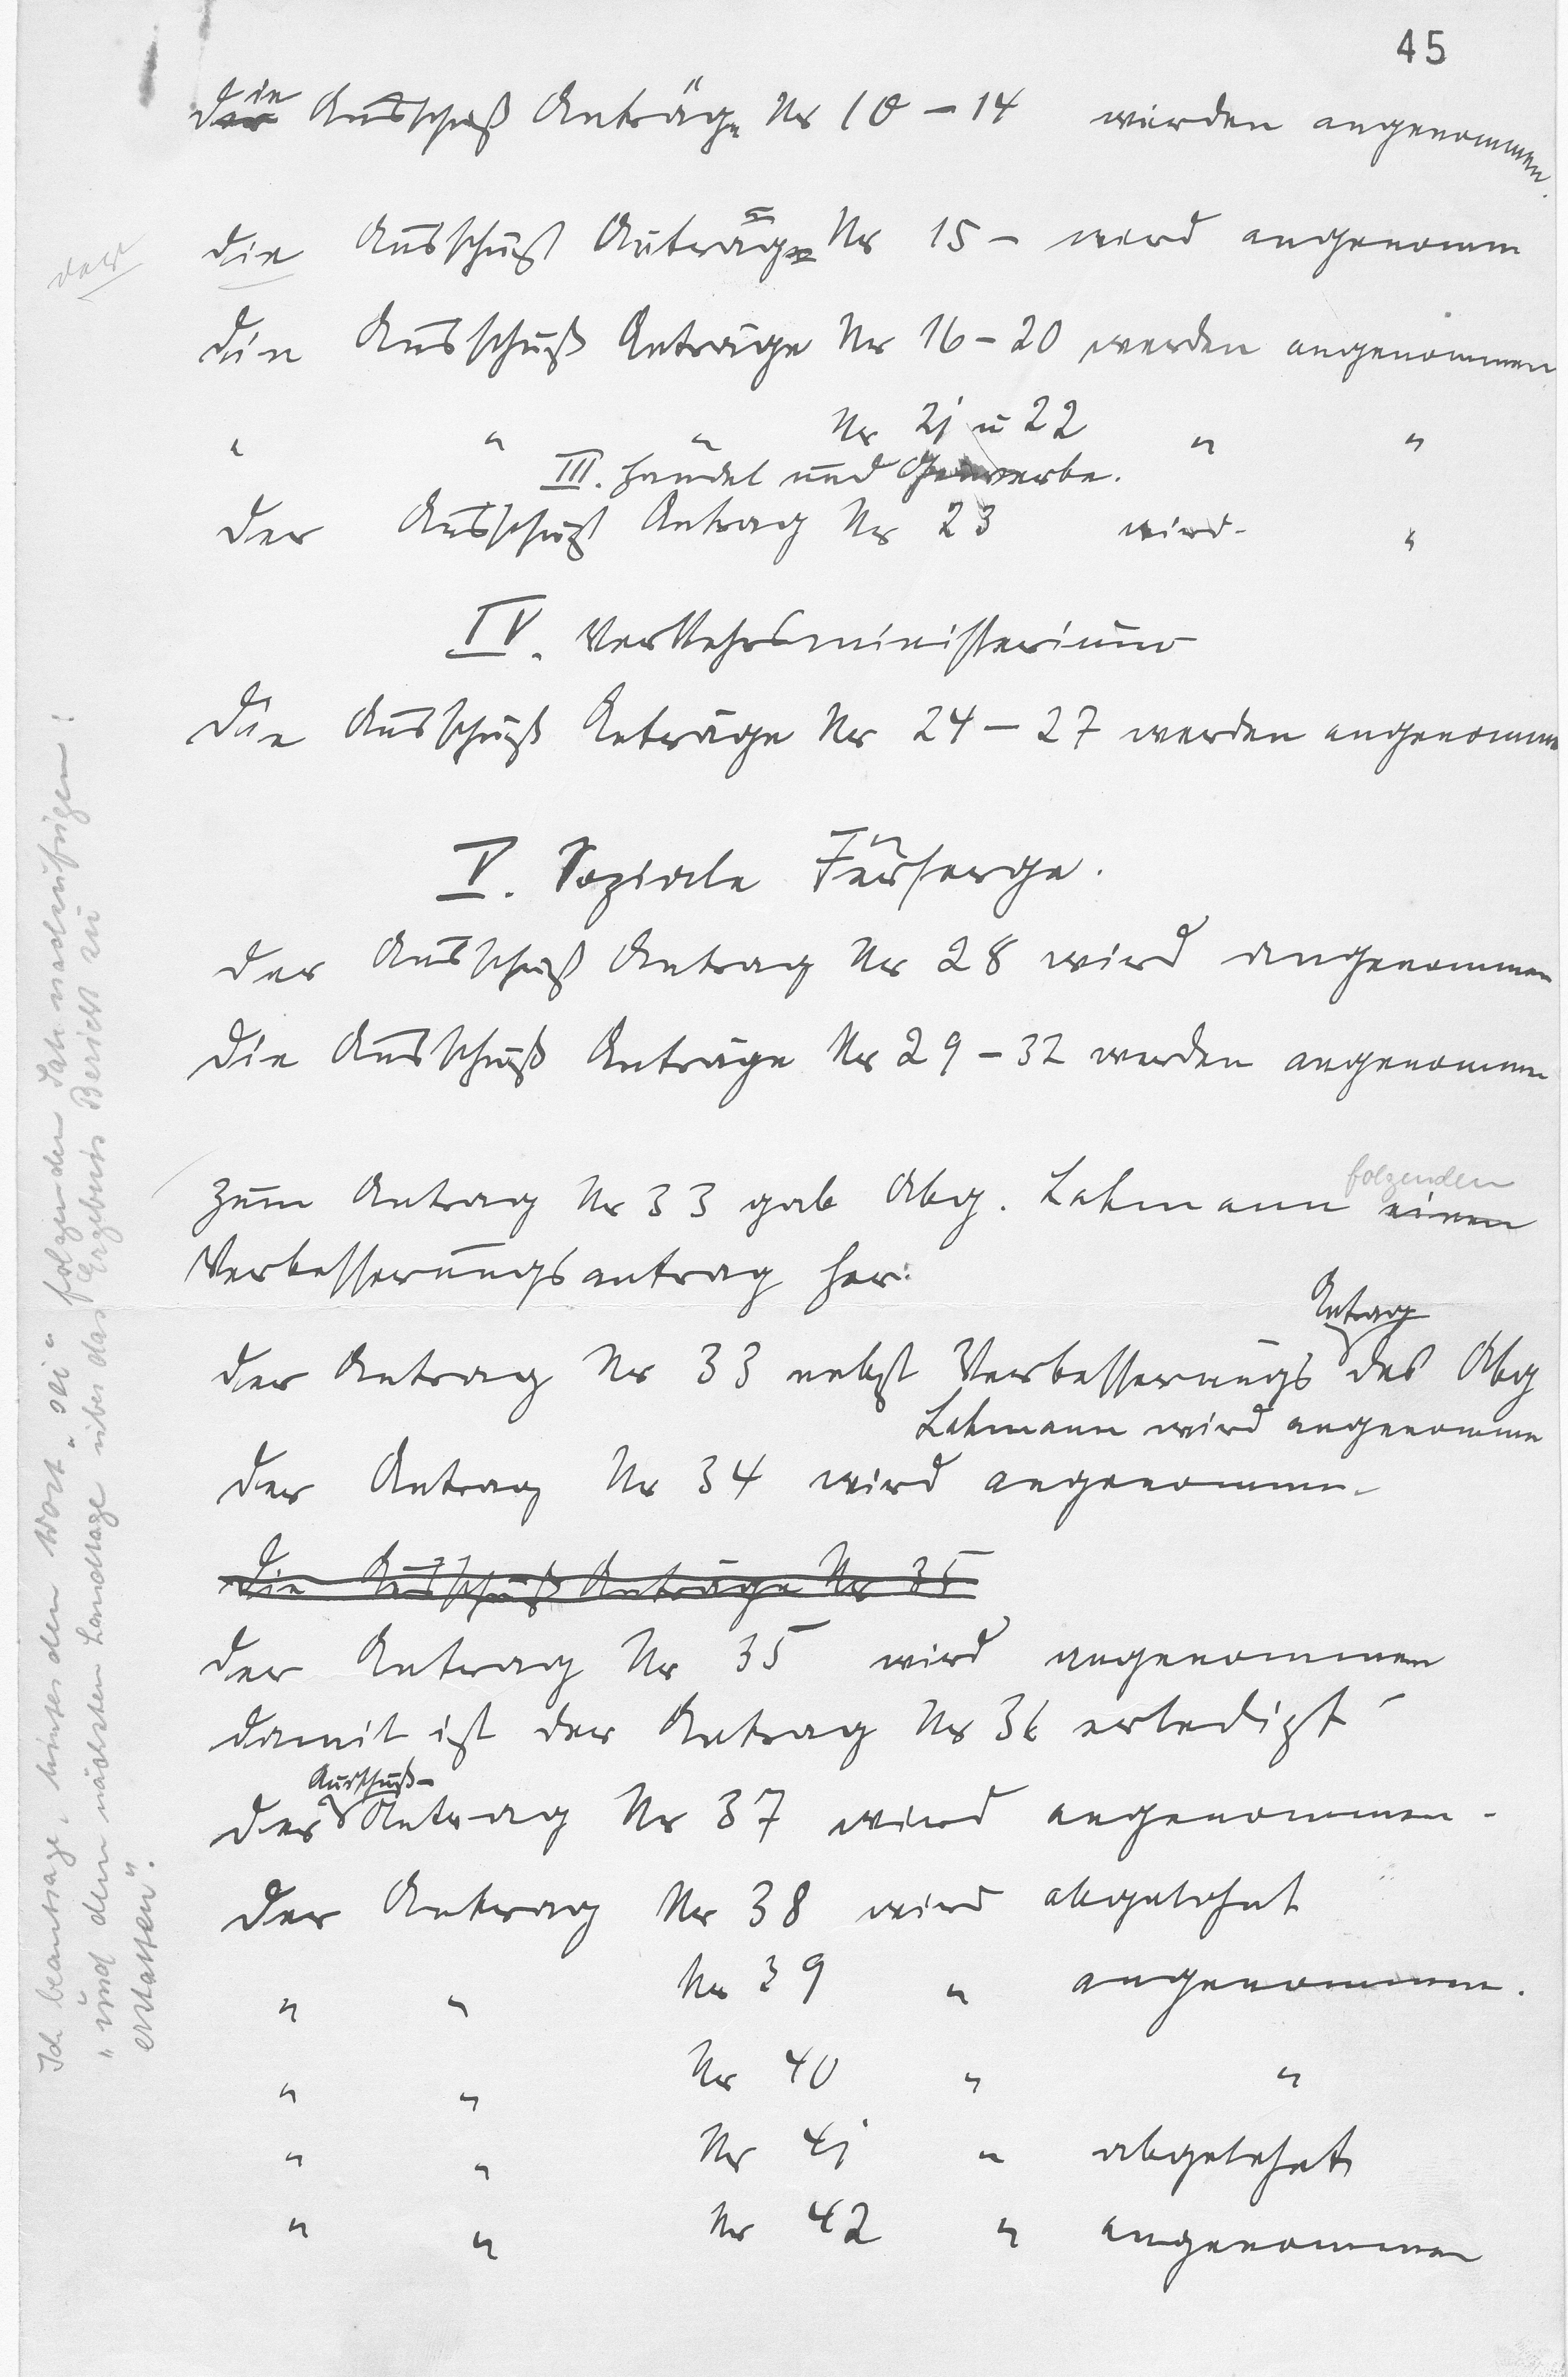 45
die Ausschuß Anträge Nr 10 – 14 werden angenommen.
der
die Ausschuß Antrag Nr 15 – wird angenomm
die Ausschuß Anträge Nr 16 – 20 werden angenommen
" " " Nr 21 u 22 " "
III. Handel und Gewerbe.
der Ausschuß Antrag Nr 23 wird "
IV. Verkehrsministerium
die Ausschuß Anträge Nr 24 – 27 werden angenomme
V. Soziale Fürsorge.
der Ausschuß Antrag Nr 28 wird angenommen
die Ausschuß Anträge Nr 29 – 32 werden angenommen
folgenden
zum Antrag Nr 33 gab Abg. Lehmann einen
Verbesserungsantrag her:
Antrag
der Antrag Nr 33 nebst Verbesserungs des Abg
Lehmann wird angenommen
der Antrag Nr 34 wird angenommen.
Die Ausschuß Anträge Nr 35
der Antrag Nr 35 wird angenommen
damit ist der Antrag Nr 36 erledigt
Ausschuß-
der Antrag Nr 37 wird angenommen.
der Antrag Nr 38 wird abgelehnt
" " Nr 39 " angenommen.
" " Nr 40 " "
" " Nr 41 " abgelehnt
" " Nr 42 " angenommen
Ich beantrage, hinter dem Wort „sei“ folgenden Satz nachzufügen:
„und dem nächsten Landtage über das Ergebnis Bericht zu
erstatten“.